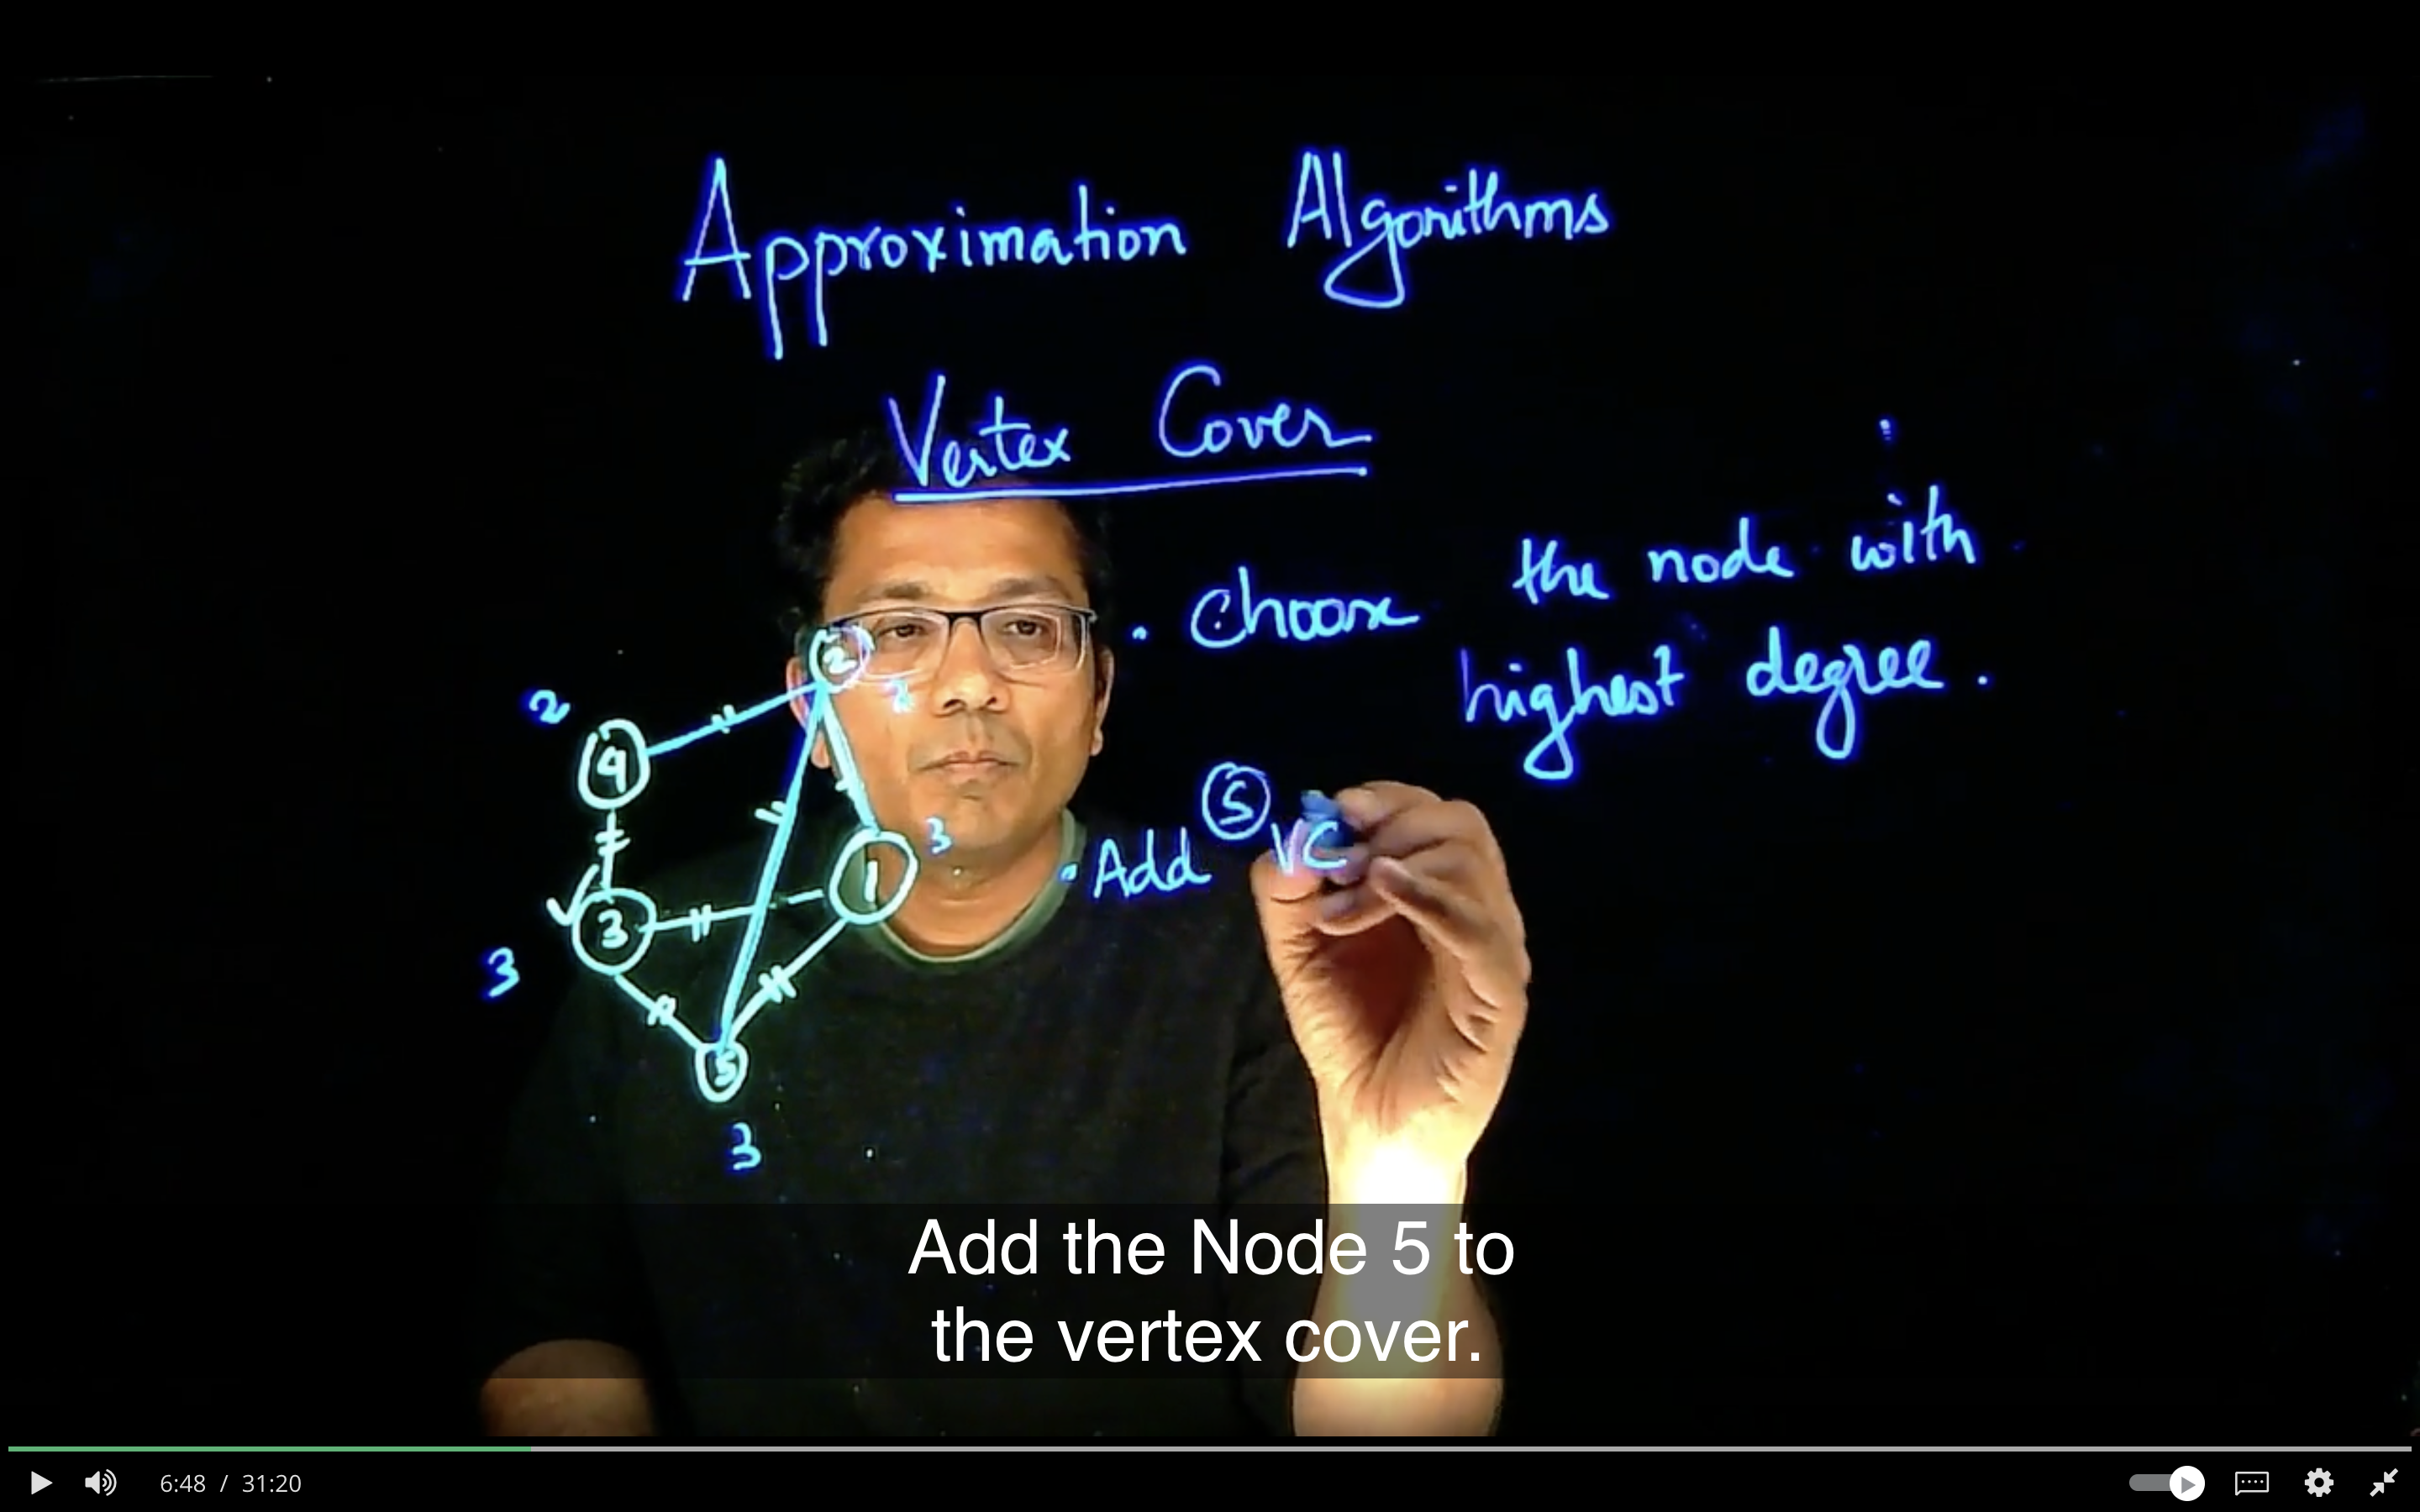 Approximation Algorithms
Vertex Cover
• Choose the node with
highest degree.
2
2
4
• Add 5 VC
3
1
3
3
5
3
Add the Node 5 to
the vertex cover.
6:48 / 31:20